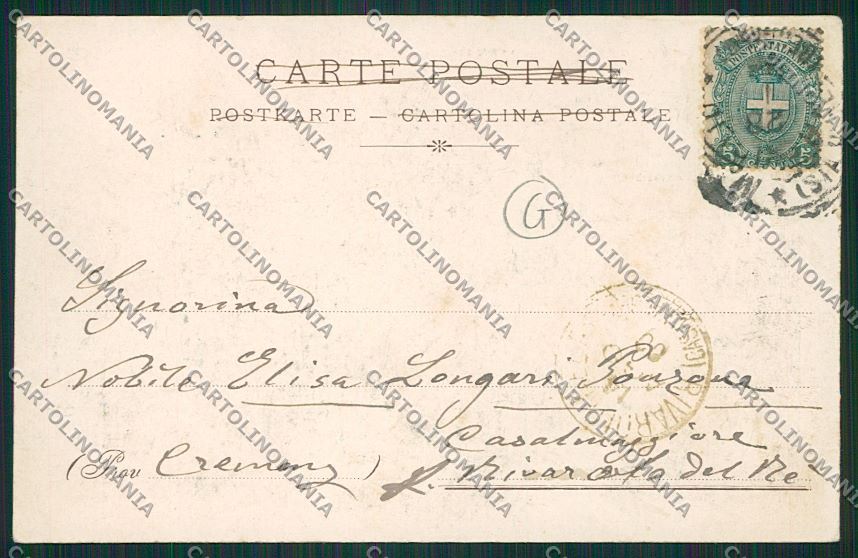 CARTE POSTALE
POSTKARTE — CARTOLINA POSTALE
POSTE ITALIANE
5 5
G
Signorina
Nobile Elisa Longari Ponzone
Casalmaggiore
(Prov Cremona)
Rivarolo del Re
CARTOLINOMANIA